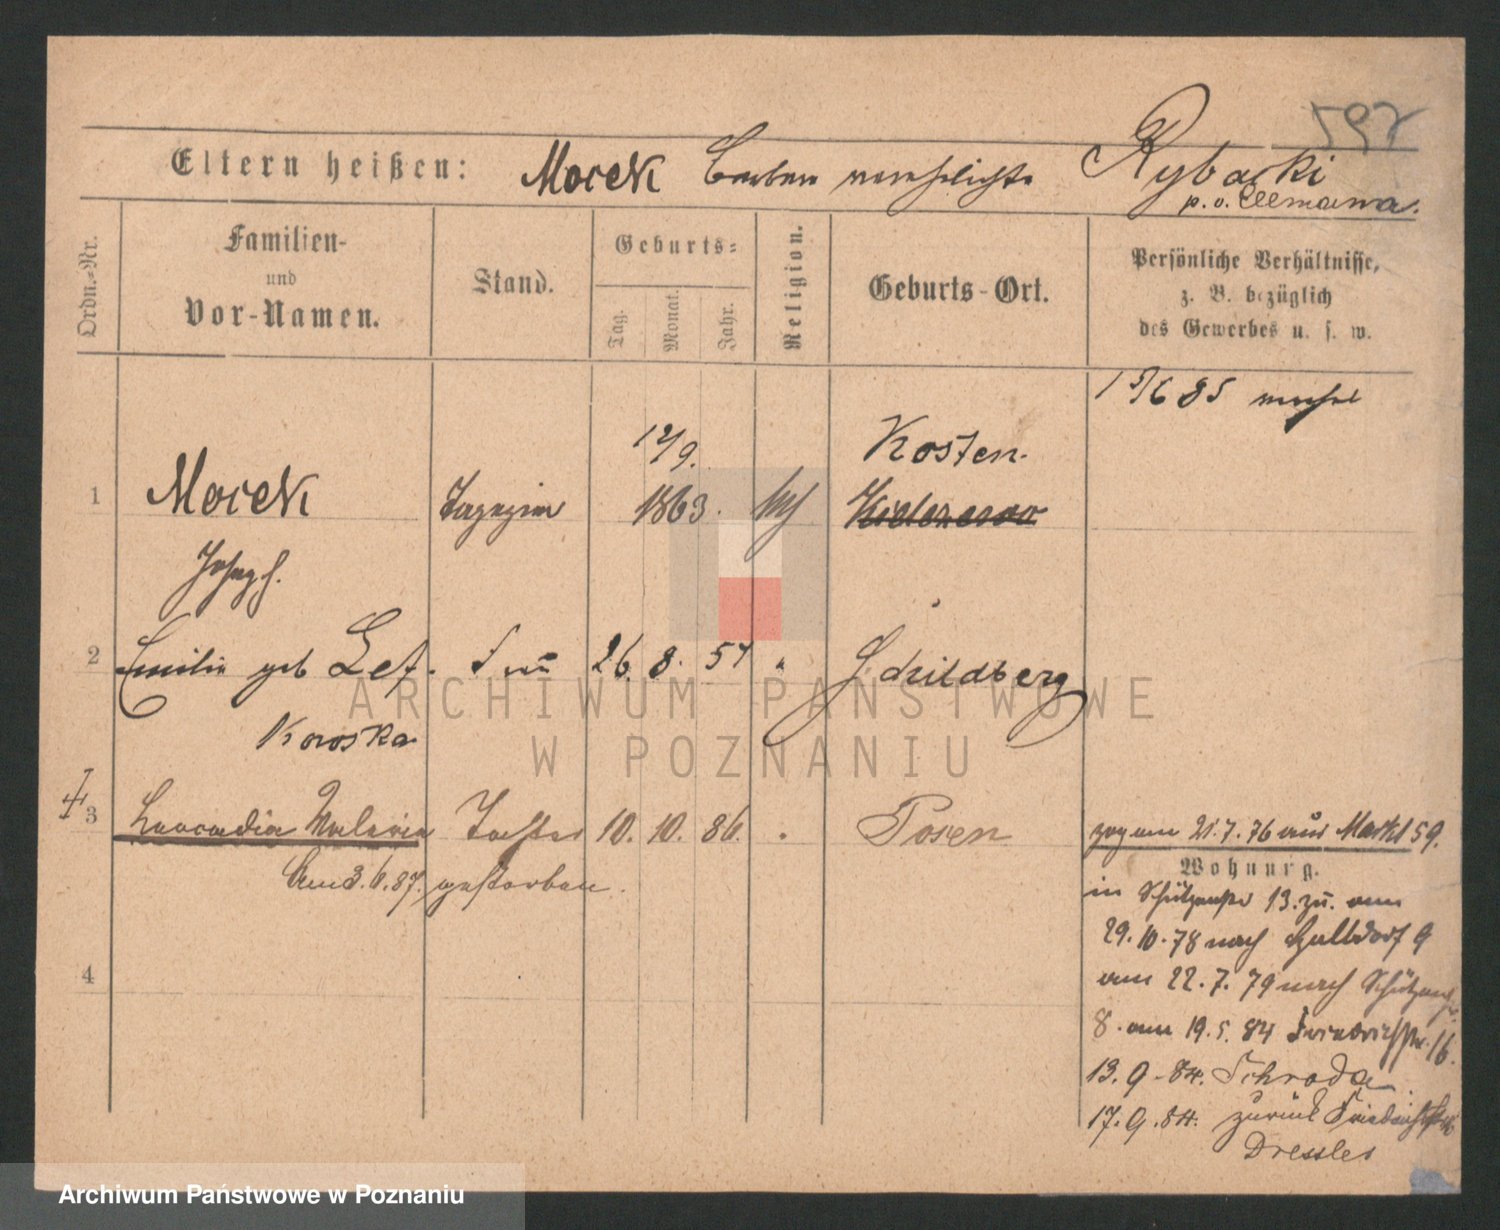 597
Eltern heißen: Mocek Barbara verehelichte Rybacki
p. o. Ellmanna.
Ordn.-Nr.
Familien-
und
Vor-Namen.
Stand.
Geburts-
Tag.
Monat.
Jahr.
Religion.
Geburts-Ort.
Persönliche Verhältnisse,
z. B. bezüglich
des Gewerbes u. s. w.
1 5/6 85
12/9. Kosten.
1 Mocek 1863.
Joseph.
2 Emilie geb Lef. Frau 26. 8. 57 " Schildberg
Kowoska
3 Leocadia Valeria Tochter 10. 10. 86. " Posen
Am 3. 6. 87. gestorben.
4
zog am 21.7.76 aus Markt 59.
Wohnung.
in Schützenstr 13. zu. am
29.10.78 nach Halbdorf 9
am 22.7.79 nach Schützenstr.
8. am 19.5.84 Friedrichstr. 16.
13.9.84. Schroda
17.9.84. zurück Friedrichstr 16
Dressler
ARCHIWUM PAŃSTWOWE
W POZNANIU
Archiwum Państwowe w Poznaniu